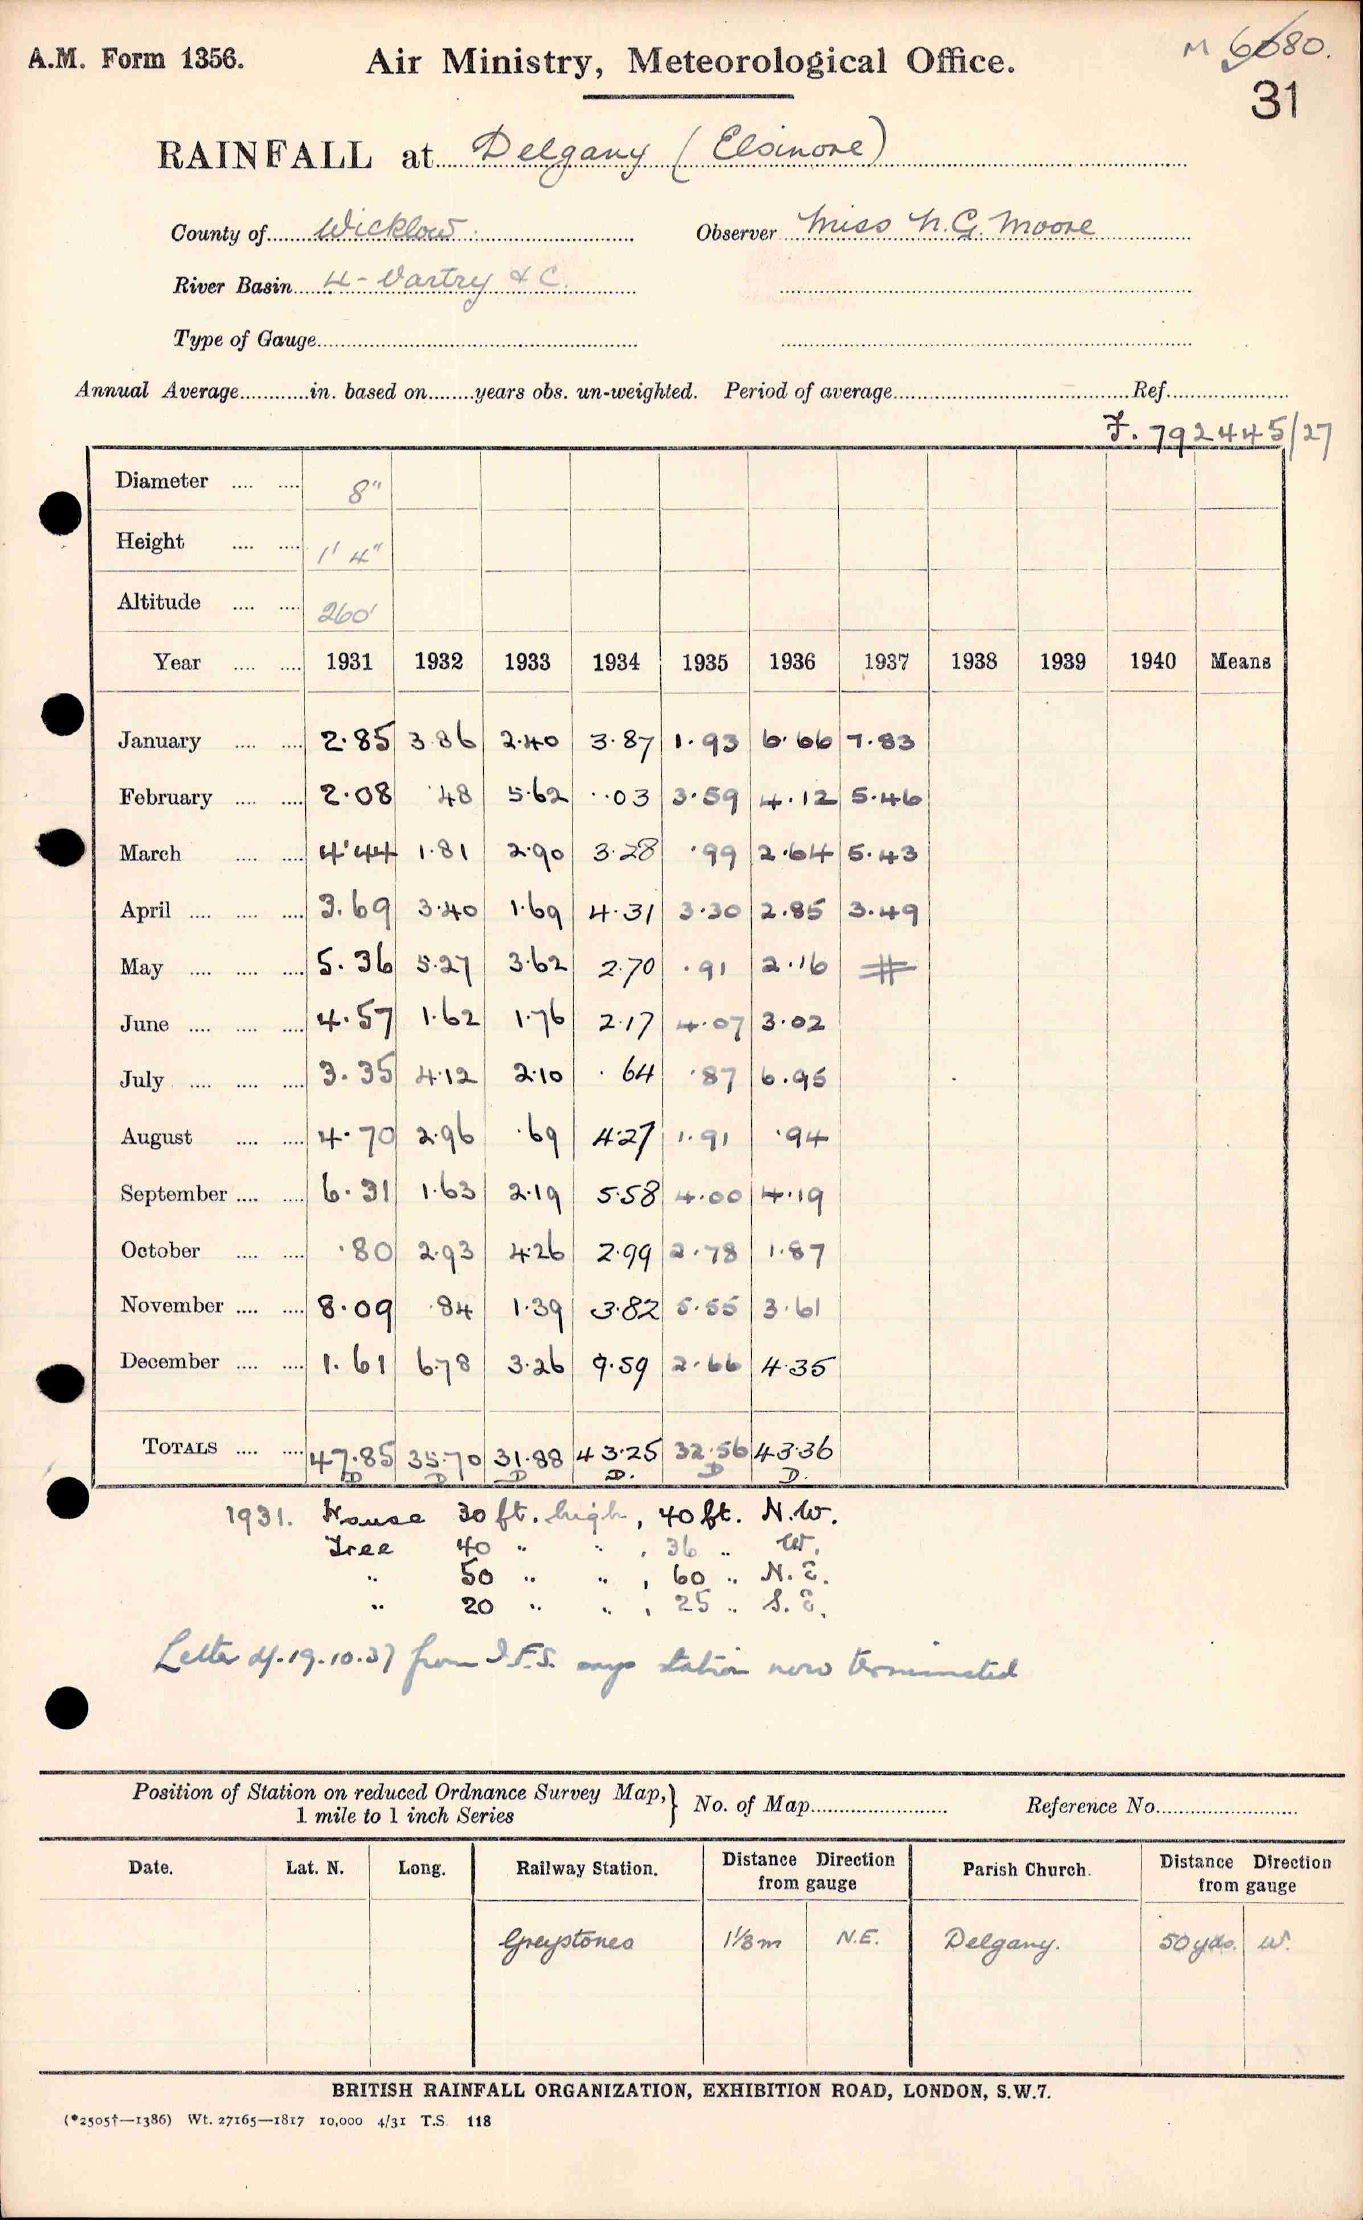 A.M. Form 1356. Air Ministry, Meteorological Office. M 6080.
31
RAINFALL at Delgany (Elsinore)
County of Wicklow. Observer Miss N.G. Moore
River Basin 4 - Vartry & C.
Type of Gauge
Annual Average in. based on years obs. un-weighted. Period of average Ref.
F. 792445/27
Diameter 8"
Height 1' 4"
Altitude 260'
Year 1931 1932 1933 1934 1935 1936 1937 1938 1939 1940 Means
January 2.85 3.86 2.40 3.87 1.93 6.66 7.83
February 2.08 .48 5.62 .03 3.59 4.12 5.46
March 4.44 1.81 2.90 3.28 .99 2.64 5.43
April 3.69 3.40 1.69 4.31 3.30 2.85 3.49
May 5.36 5.27 3.62 2.70 .91 2.16 #
June 4.57 1.62 1.76 2.17 4.07 3.02
July 3.35 4.12 2.10 .64 .87 6.95
August 4.70 2.96 .69 4.27 1.91 .94
September 6.31 1.63 2.19 5.58 4.00 4.19
October .80 2.93 4.26 2.99 2.78 1.87
November 8.09 .84 1.39 3.82 5.55 3.61
December 1.61 6.78 3.26 9.59 2.66 4.35
TOTALS 47.85 35.70 31.88 43.25 32.56 43.36
D D D D. D D.
1931. House 30 ft. high, 40 ft. N.W.
Tree 40 " " , 36 " W.
" 50 " " , 60 " N.E.
" 20 " " , 25 " S.E.
Letter of. 19.10.37 from I.F.S. says station now terminated
Position of Station on reduced Ordnance Survey Map, } No. of Map Reference No.
1 mile to 1 inch Series
Date. Lat. N. Long. Railway Station. Distance Direction from gauge Parish Church. Distance Direction from gauge
Greystones 1⅓ m N.E. Delgany. 50 yds. W.
BRITISH RAINFALL ORGANIZATION, EXHIBITION ROAD, LONDON, S.W.7.
(*2505†—1386) Wt. 27165—1817 10,000 4/31 T.S. 118